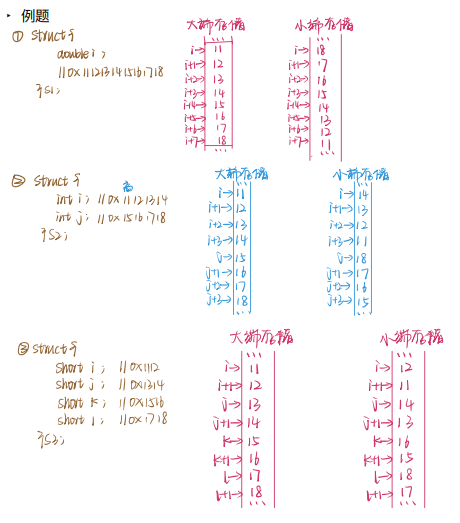 · 例题
① struct {
double i; // 0x1112131415161718
} s1;
大端存储
...
i→ 11
i+1→ 12
i+2→ 13
i+3→ 14
i+4→ 15
i+5→ 16
i+6→ 17
i+7→ 18
...
小端存储
...
i→ 18
i+1→ 17
i+2→ 16
i+3→ 15
i+4→ 14
i+5→ 13
i+6→ 12
i+7→ 11
...
② struct {
高
int i; // 0x11121314
int j; // 0x15161718
} s2;
大端存储
...
i→ 11
i+1→ 12
i+2→ 13
i+3→ 14
j→ 15
j+1→ 16
j+2→ 17
j+3→ 18
...
小端存储
...
i→ 14
i+1→ 13
i+2→ 12
i+3→ 11
j→ 18
j+1→ 17
j+2→ 16
j+3→ 15
...
③ struct {
short i; // 0x1112
short j; // 0x1314
short k; // 0x1516
short l; // 0x1718
} s3;
大端存储
...
i→ 11
i+1→ 12
j→ 13
j+1→ 14
k→ 15
k+1→ 16
l→ 17
l+1→ 18
...
小端存储
...
i→ 12
i+1→ 11
j→ 14
j+1→ 13
k→ 16
k+1→ 15
l→ 18
l+1→ 17
...